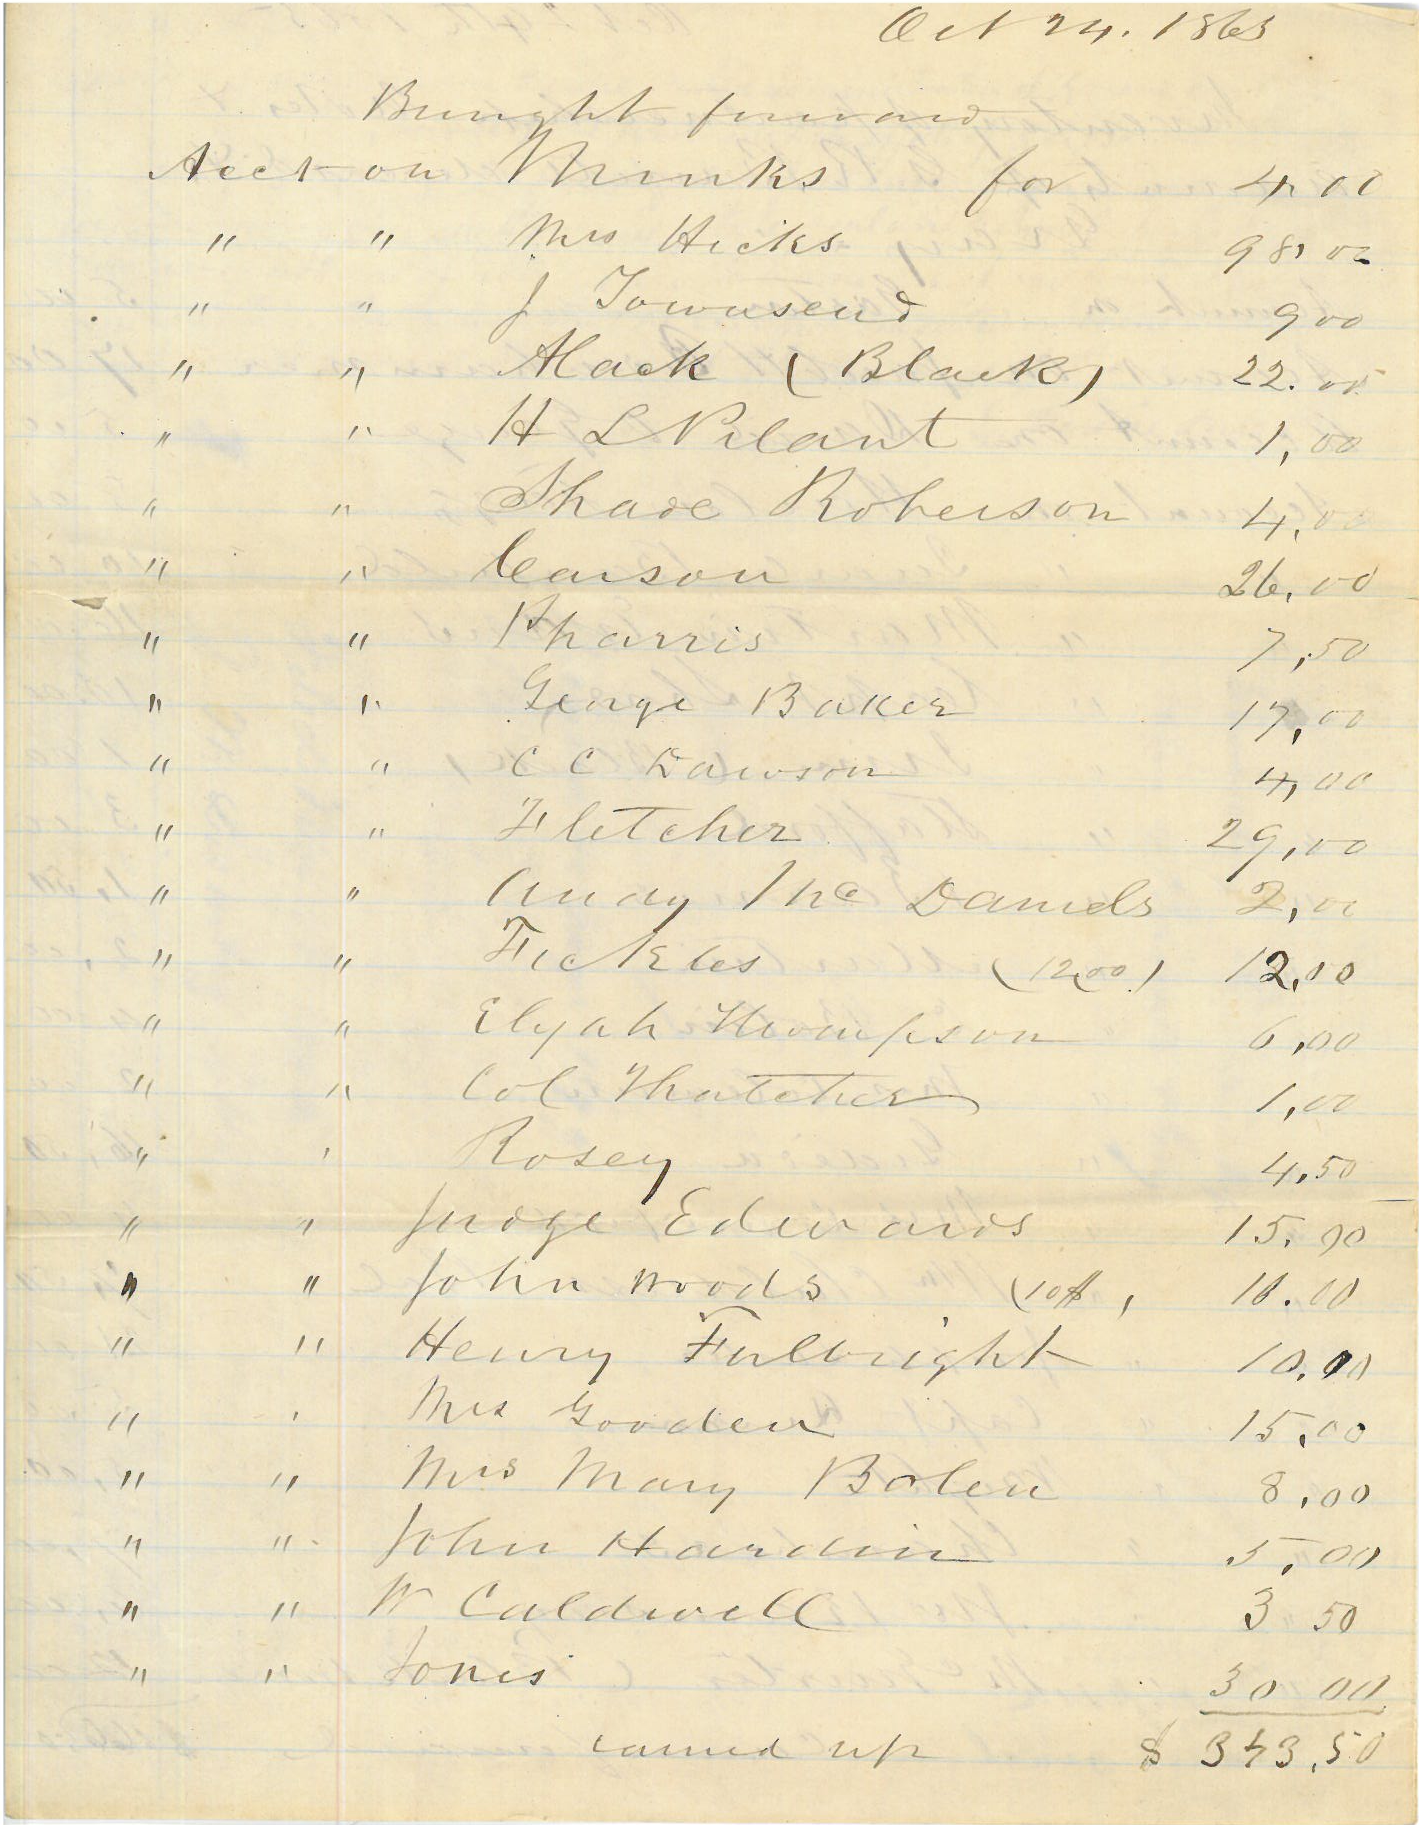 Oct 24. 1865
Brought forward
Acct on Minks for 4,00
" " Mrs Hicks 98,00
" " J Townsend 9 00
" " Mack (Black) 22.00
" " H L Pilant 1,00
" " Shade Roberson 4,00
" " Carson 26,00
" " Pharris 7,50
" " George Baker 17,00
" " C C Dawson 4,00
" " Fletcher 29,00
" " Anday Mc Daniels 2,00
" " Fickles (12,00) 12,00
" " Elijah Thompson 6,00
" " Col Thatcher 1,00
" " Rosey 4,50
" " Judge Edwards 15.00
" " John Woods (10$, 10.00
" " Henry Fulbright 10.00
" " Mrs Gooden 15,00
" " Mrs Mary Bolen 8,00
" " John Hardin 5,00
" " W Caldwell 3 50
" " Jones 30 00
carried up $ 343,50